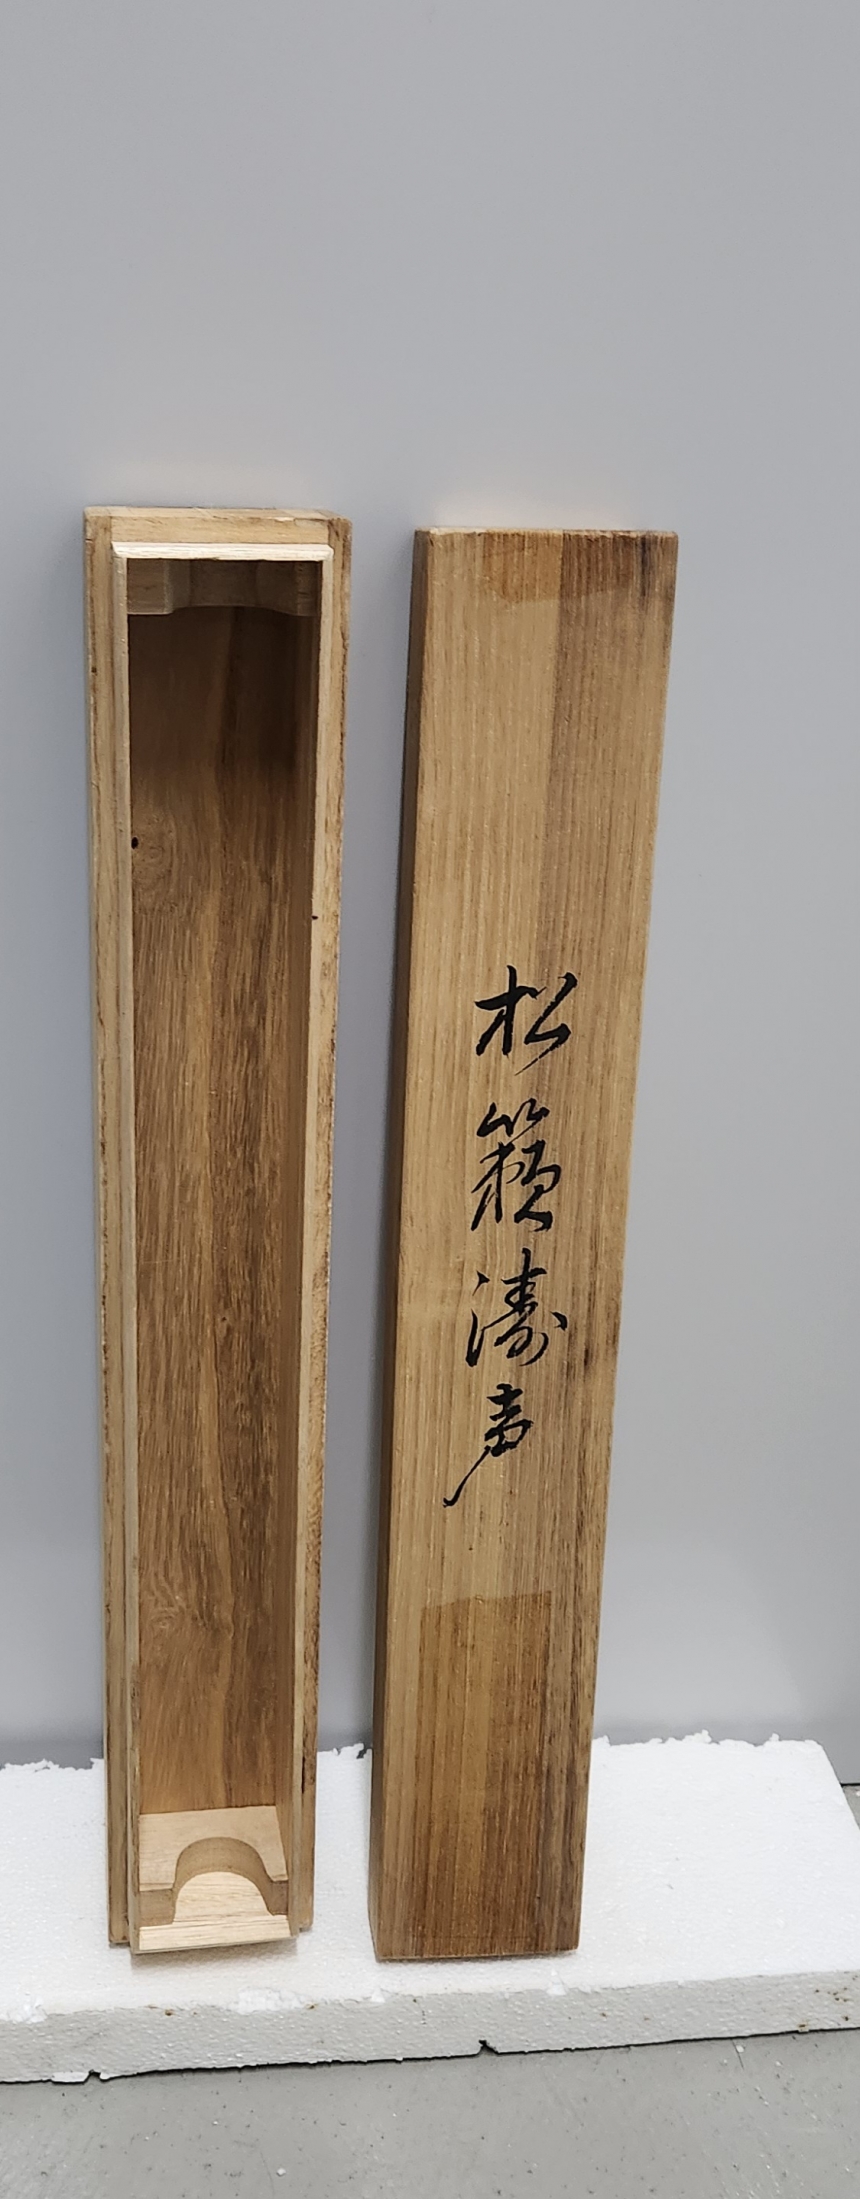 松籟濤声